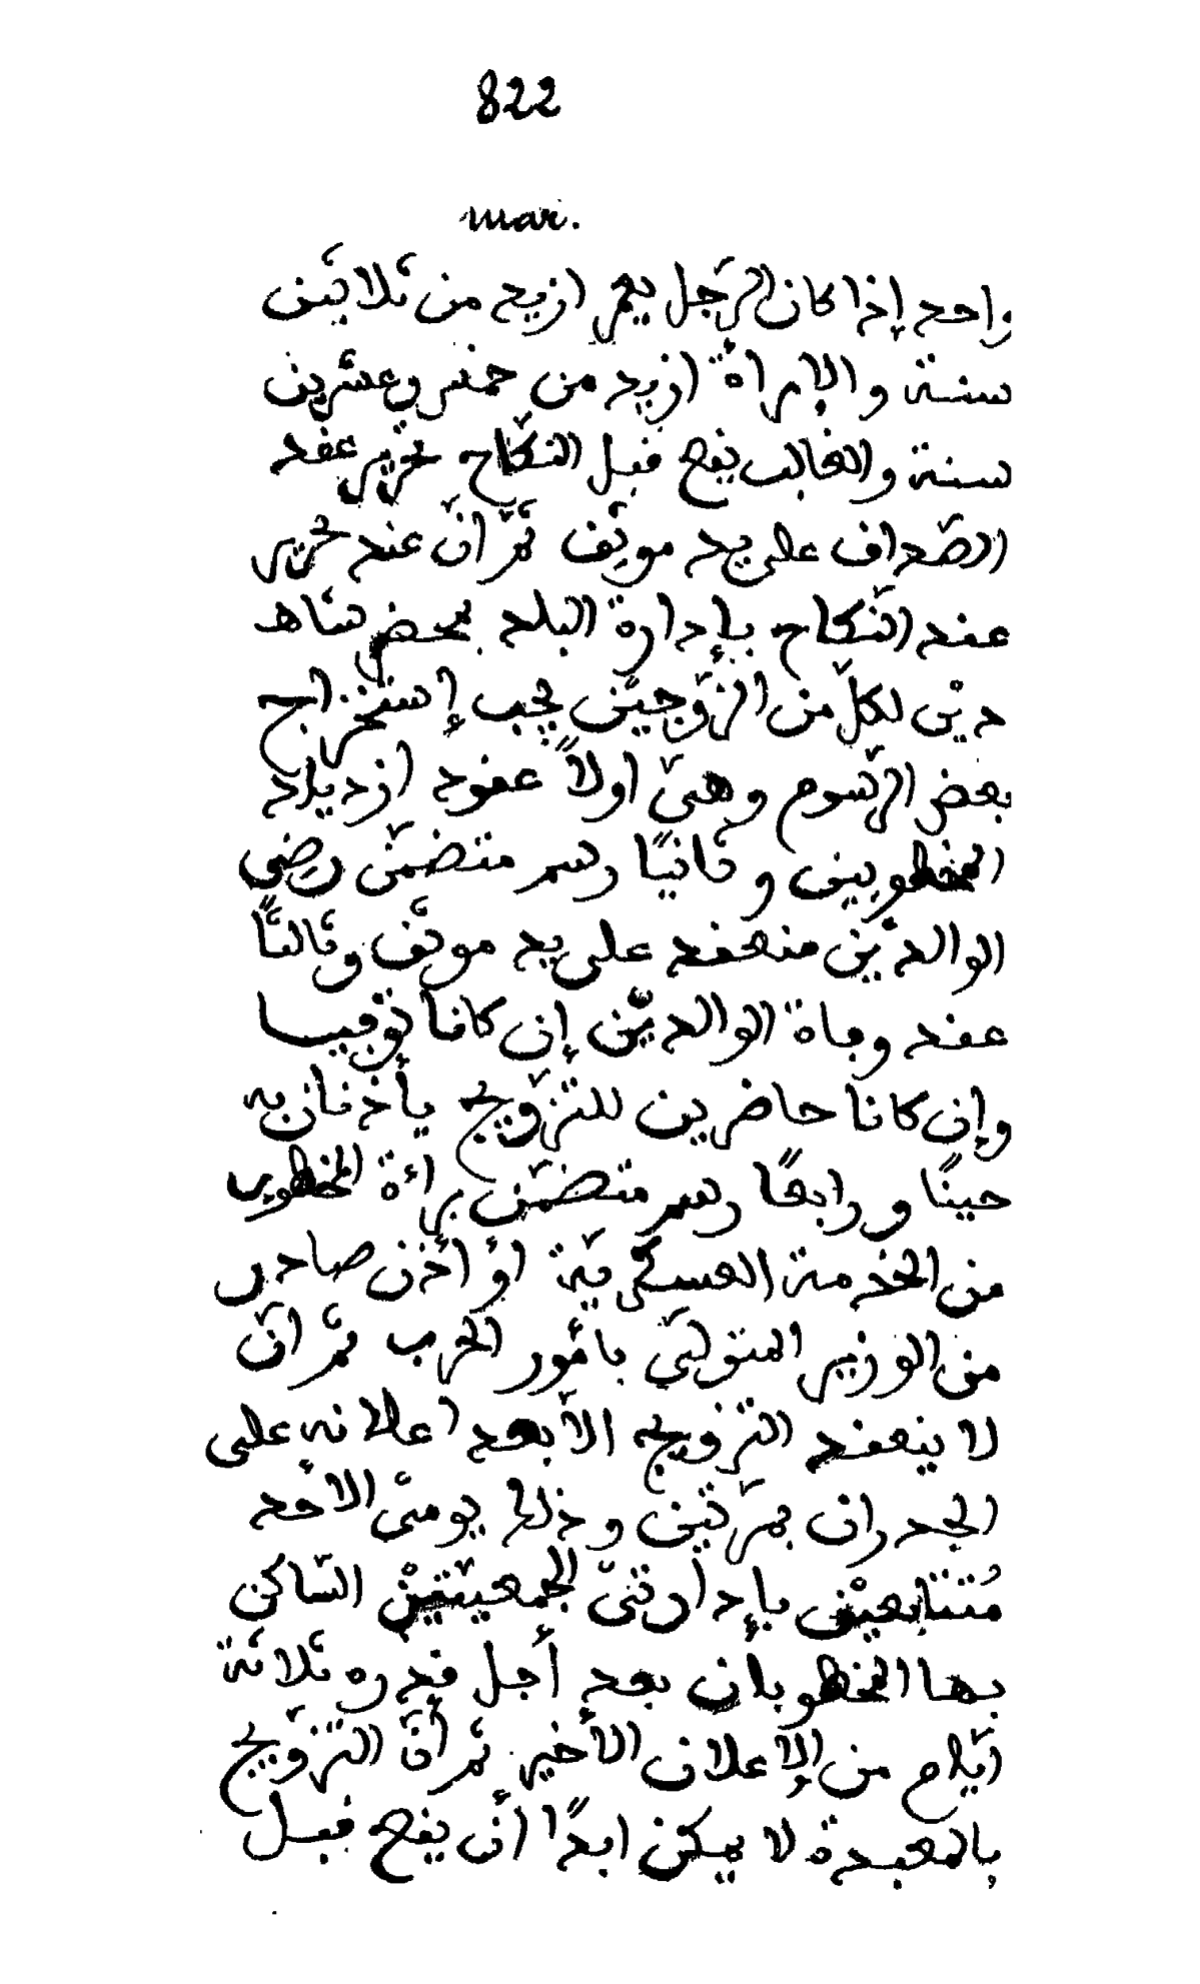 822
mari.
واحد إذا كان الرّجل يعمر ازيد من ثلاثين
سنة والإمرأة ازيد من خمس وعشرين
سنة والغالب يقع قبل النّكاح تحرير عقد
الصّداق على يد موثِّق ثمّ انّ عند تحرير
عقد النّكاح بإدارة البلد بمحضر شاهـ
ديْن لكلّ من الزّوجيْن يجب إستخراج
بعض الرّسوم وهيَ اولاً عقود ازدياد
المخطوبين وثانيًا رسم متضمّن رضى
الوالديْن منعقد على يد موثّق وثالثًا
عقد وفاة الوالديْن إن كانا توفّيا
وإن كانا حاضرين للتزّويج يأذنان به
حينًا ورابعًا رسم متضمّن براءة المخطوب
من الخدمة العسكريّة اوْ أذن صادر
من الوزير المتولّي بأمور الحرب ثمّ انّ
لا ينعقد التّزويج الاّ بعد اعلانه على
الجدران بمرّتين وذلك يوميْ الاحد
مُتتابعيْن بإدارتيْ الجمعيّتيْن السّاكن
بها المخطوبان بعد أجل قدره ثلاثة
ايّام من الإعلان الأخير ثمّ أنّ التّزويج
بالمعبدة لا يمكن ابدًا أن يقع قبل